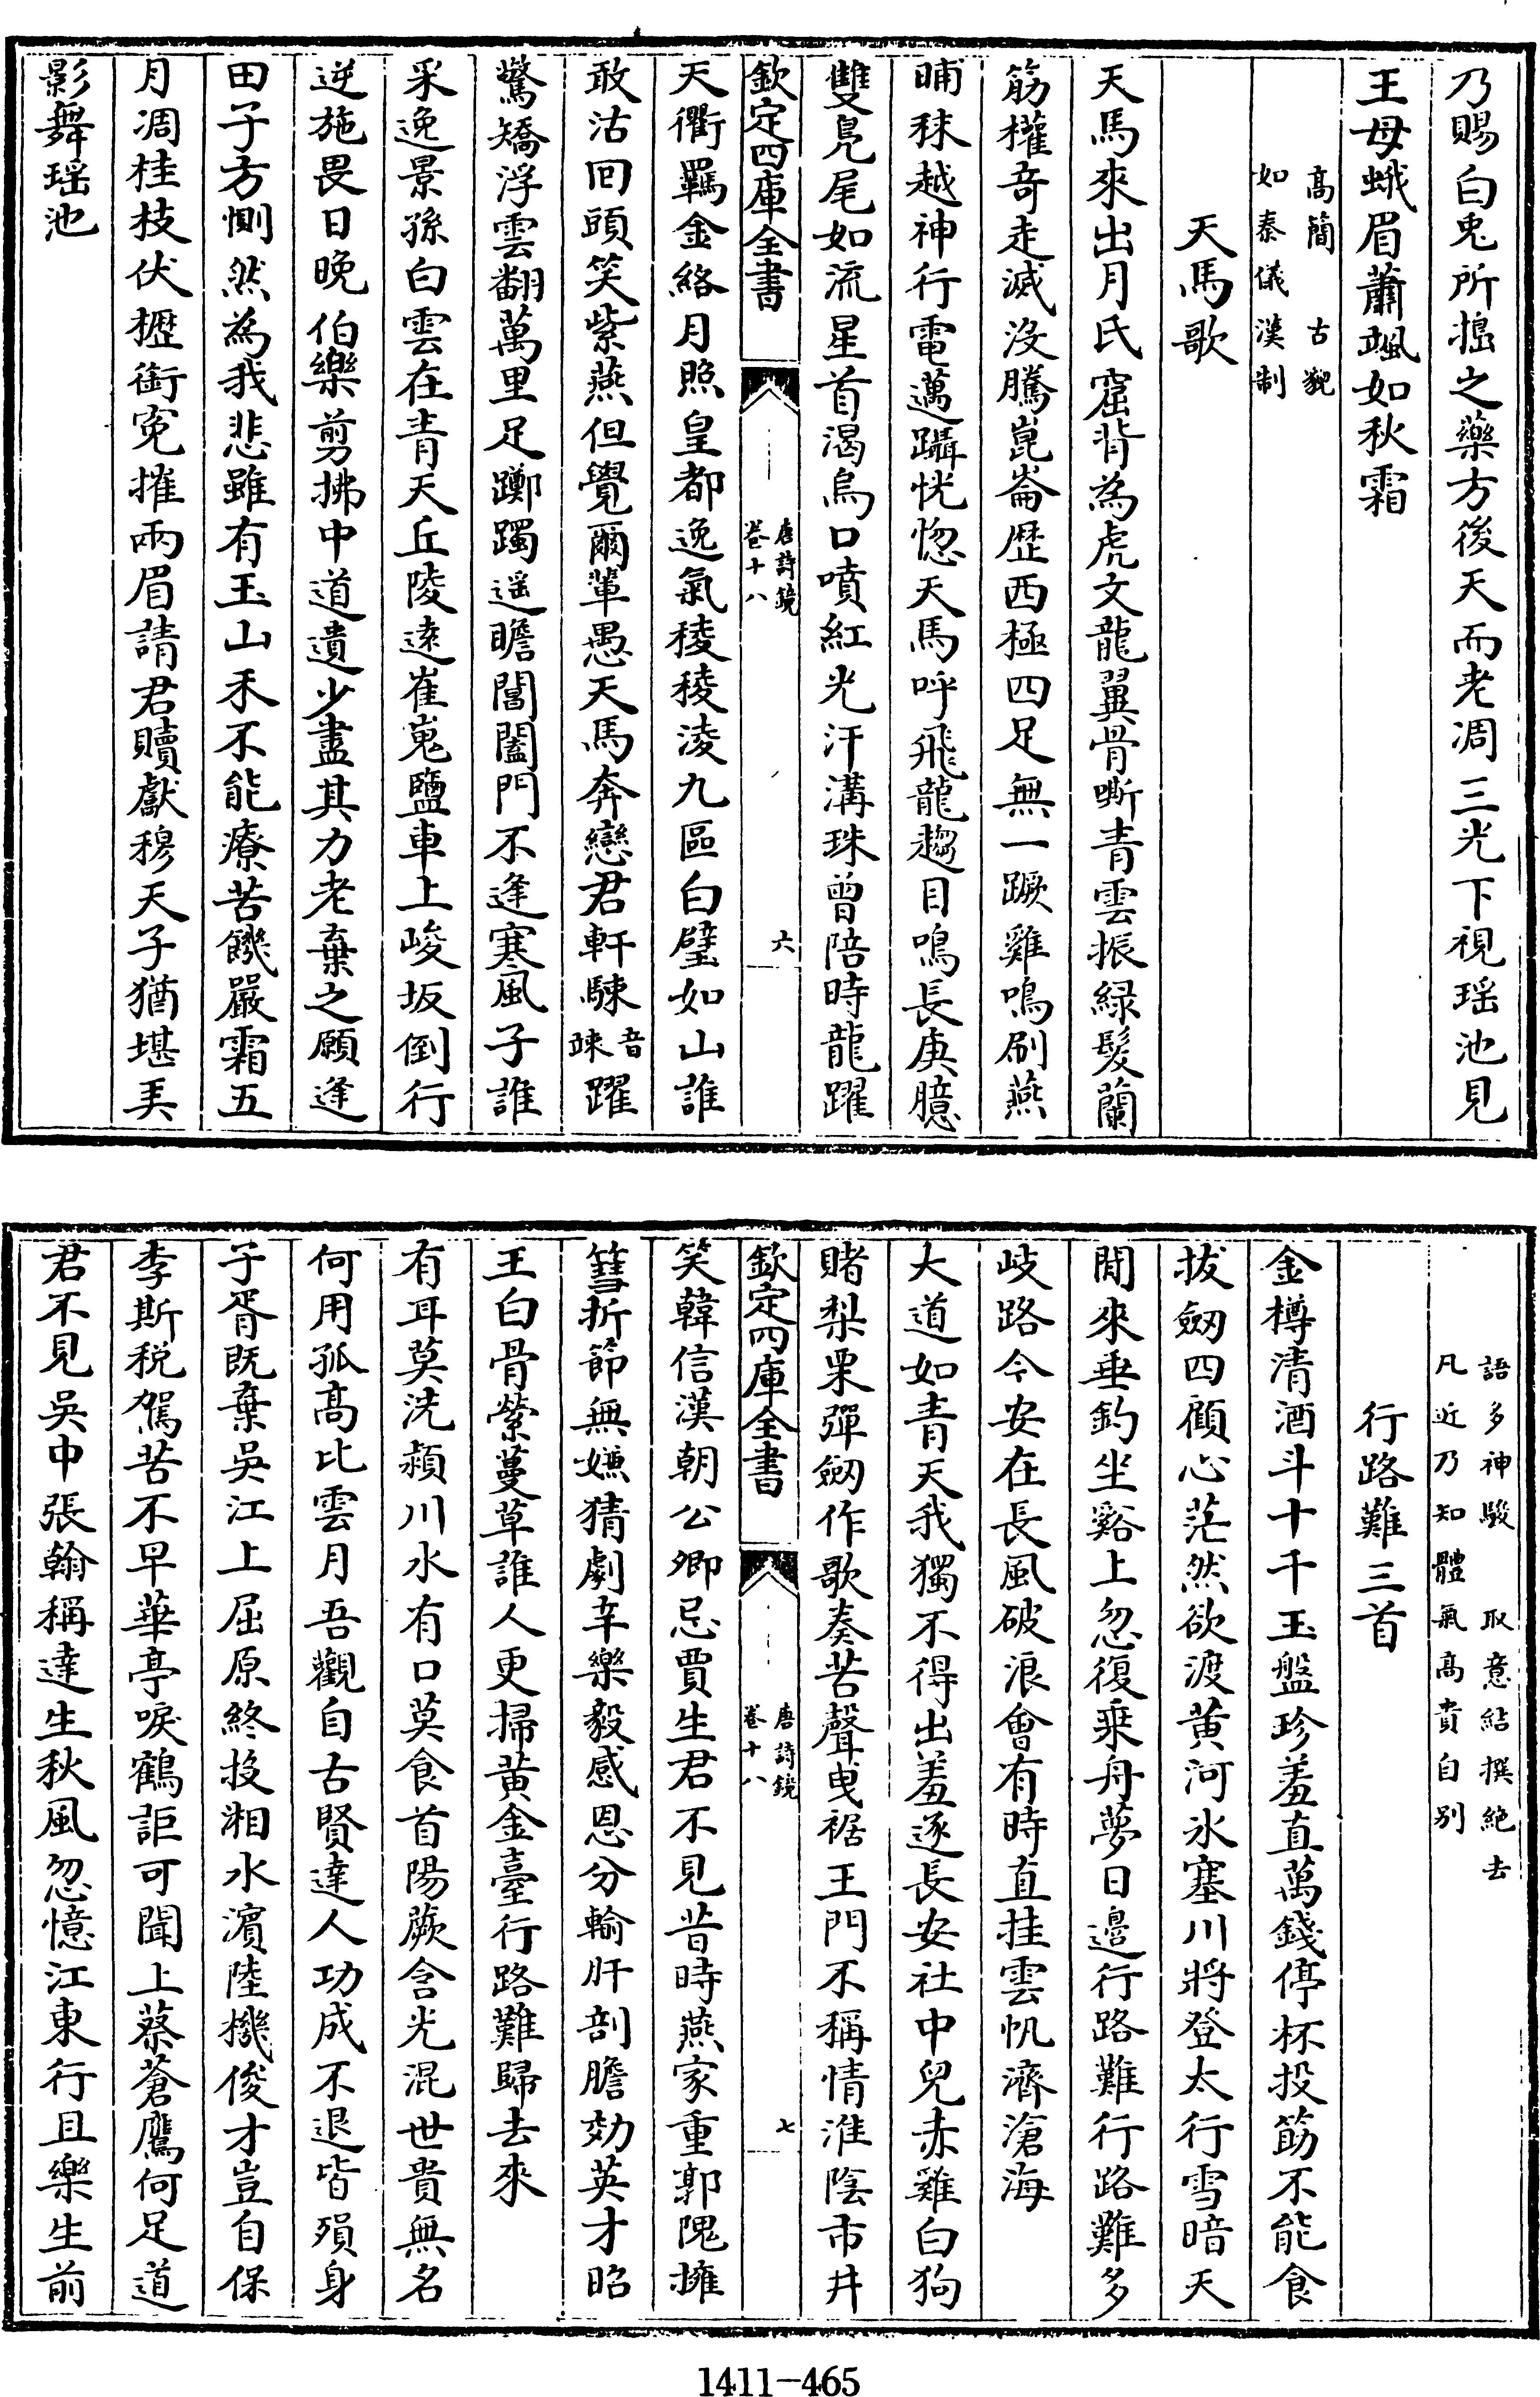 乃賜白兎所搗之藥方後天而老凋三光下視瑶池見
王母蛾眉蕭颯如秋霜
高簡　古貌
如秦儀漢制
天馬歌
天馬來出月氏窟背為虎文龍翼骨嘶青雲振緑髮蘭
筋權竒走滅没騰崑崙歴西極四足無一蹶雞鳴刷燕
晡秣越神行電邁躡恍惚天馬呼飛龍趨目鳴長庚臆
雙鳬尾如流星首渴烏口噴紅光汗溝珠曾陪時龍躍
欽定四庫全書
唐詩鏡
卷十八
六
天衢羈金絡月照皇都逸氣稜稜淩九區白璧如山誰
敢沽囘頭笑紫燕但覺爾輩愚天馬奔戀君軒駷音竦躍
驚矯浮雲翻萬里足躑躅遥瞻閶闔門不逢寒風子誰
采逸景孫白雲在青天丘陵逺崔嵬鹽車上峻坂倒行
逆施畏日晚伯樂剪拂中道遺少盡其力老棄之願逢
田子方惻然為我悲雖有玉山禾不能療苦饑嚴霜五
月凋桂枝伏櫪銜寃摧兩眉請君贖獻穆天子猶堪弄
影舞瑶池
語多神駿　取意結撰絶去
凡近乃知體氣高貴自别
行路難三首
金樽清酒斗十千玉盤珍羞直萬錢停杯投筯不能食
拔劒四顧心茫然欲渡黄河氷塞川將登太行雪暗天
閒來垂釣坐谿上忽復乗舟夢日邉行路難行路難多
歧路今安在長風破浪會有時直挂雲帆濟滄海
大道如青天我獨不得出羞逐長安社中兒赤雞白狗
賭梨栗彈劒作歌奏苦聲曵裾王門不稱情淮隂市井
欽定四庫全書
唐詩鏡
卷十八
七
笑韓信漢朝公卿忌賈生君不見昔時燕家重郭隗擁
篲折節無嫌猜劇辛樂毅感恩分輸肝剖膽効英才昭
王白骨縈蔓草誰人更掃黄金臺行路難歸去來
有耳莫洗潁川水有口莫食首陽蕨含光混世貴無名
何用孤高比雲月吾觀自古賢達人功成不退皆殞身
子胥既棄吳江上屈原終投湘水濱陸機俊才豈自保
李斯税駕苦不早華亭唳鶴詎可聞上蔡蒼鷹何足道
君不見吳中張翰稱達生秋風忽憶江東行且樂生前
1411-465